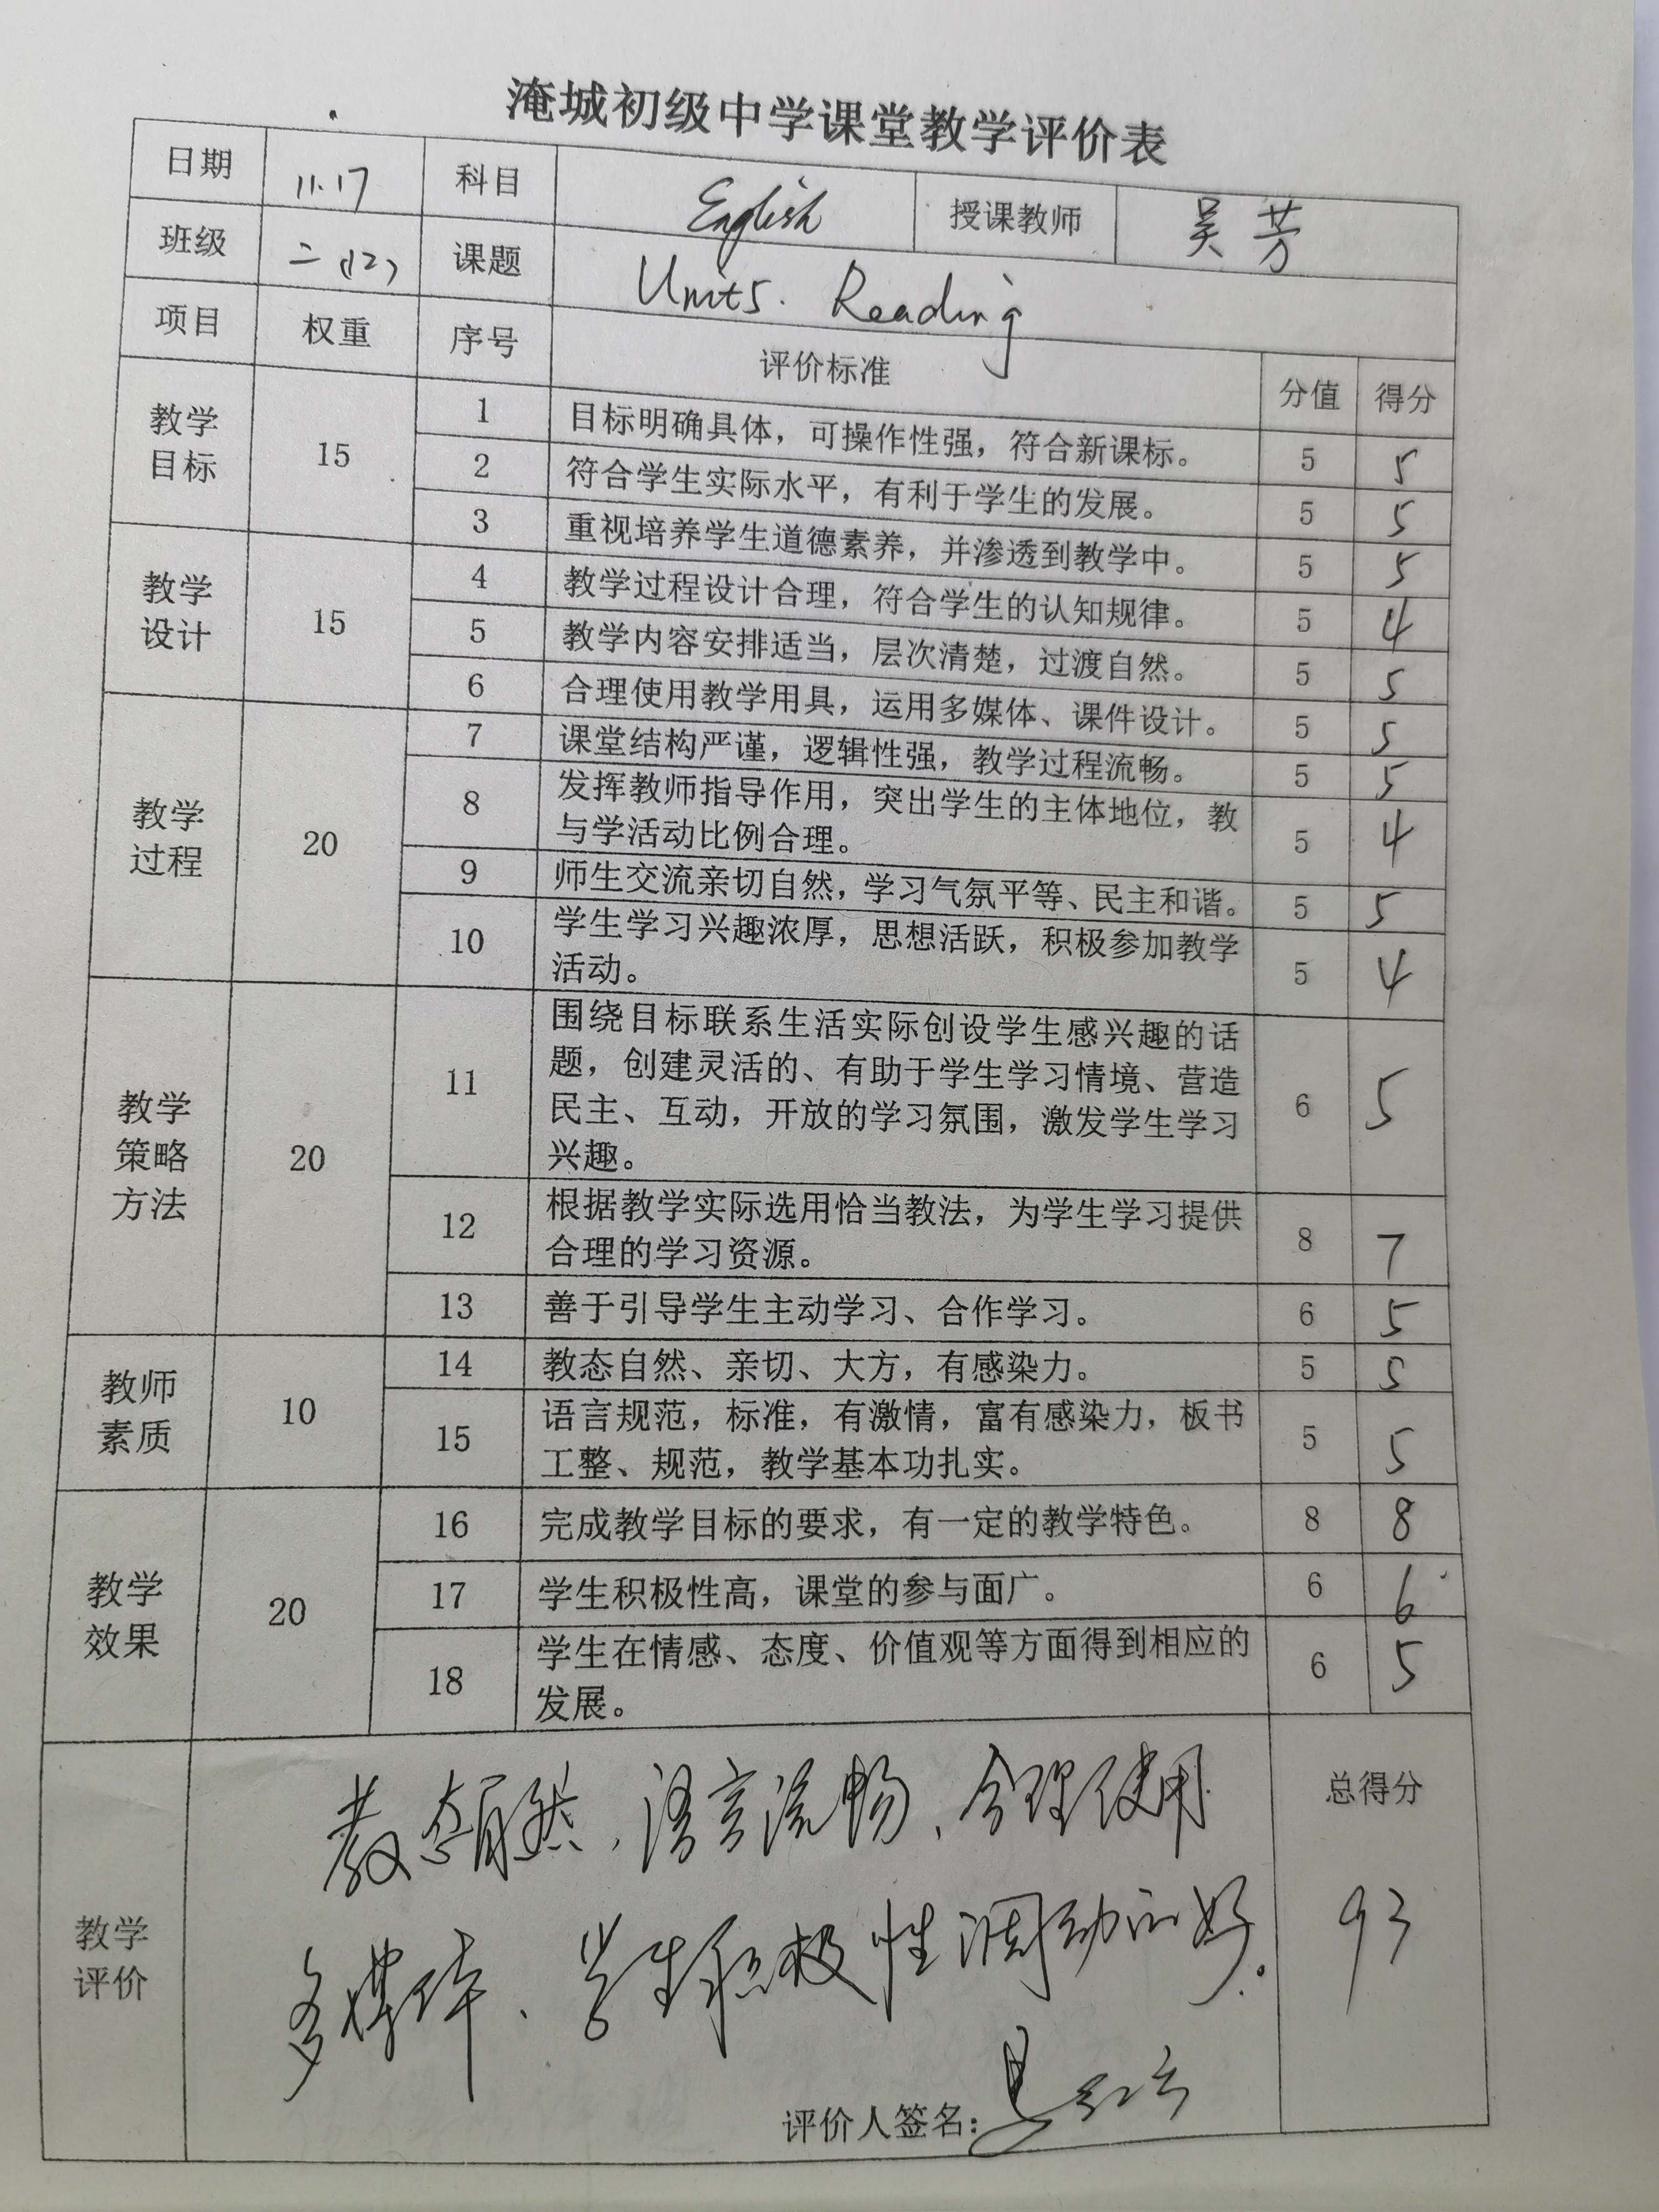 淹城初级中学课堂教学评价表
日期 11.17 科目 English 授课教师 吴芳
班级 二(12) 课题 Unit5. Reading
项目 权重 序号 评价标准 分值 得分
教学目标 15 1 目标明确具体，可操作性强，符合新课标。 5 5
2 符合学生实际水平，有利于学生的发展。 5 5
3 重视培养学生道德素养，并渗透到教学中。 5 5
教学设计 15 4 教学过程设计合理，符合学生的认知规律。 5 4
5 教学内容安排适当，层次清楚，过渡自然。 5 5
6 合理使用教学用具，运用多媒体、课件设计。 5 5
教学过程 20 7 课堂结构严谨，逻辑性强，教学过程流畅。 5 5
8 发挥教师指导作用，突出学生的主体地位，教
与学活动比例合理。 5 4
9 师生交流亲切自然，学习气氛平等、民主和谐。 5 5
10 学生学习兴趣浓厚，思想活跃，积极参加教学
活动。 5 4
教学策略方法 20 11 围绕目标联系生活实际创设学生感兴趣的话
题，创建灵活的、有助于学生学习情境、营造
民主、互动，开放的学习氛围，激发学生学习
兴趣。 6 5
12 根据教学实际选用恰当教法，为学生学习提供
合理的学习资源。 8 7
13 善于引导学生主动学习、合作学习。 6 5
教师素质 10 14 教态自然、亲切、大方，有感染力。 5 5
15 语言规范，标准，有激情，富有感染力，板书
工整、规范，教学基本功扎实。 5 5
教学效果 20 16 完成教学目标的要求，有一定的教学特色。 8 8
17 学生积极性高，课堂的参与面广。 6 6
18 学生在情感、态度、价值观等方面得到相应的
发展。 6 5
教学评价 教态自然、语言流畅、合理使用
多媒体、学生积极性调动的好.
总得分 93
评价人签名：